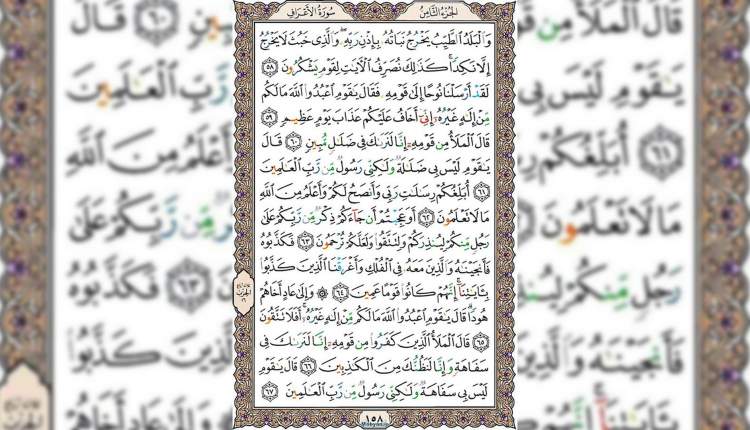 سُورَةُ الْأَعْرَافِ
الجُزءُ الثَّامِن
وَالْبَلَدُ الطَّيِّبُ يَخْرُجُ نَبَاتُهُ بِإِذْنِ رَبِّهِ وَالَّذِي خَبُثَ لَا يَخْرُجُ
إِلَّا نَكِدًا كَذَلِكَ نُصَرِّفُ الْآيَاتِ لِقَوْمٍ يَشْكُرُونَ ٥٨
لَقَدْ أَرْسَلْنَا نُوحًا إِلَى قَوْمِهِ فَقَالَ يَاقَوْمِ اعْبُدُوا اللَّهَ مَا لَكُم
مِّنْ إِلَهٍ غَيْرُهُ إِنِّي أَخَافُ عَلَيْكُمْ عَذَابَ يَوْمٍ عَظِيمٍ ٥٩
قَالَ الْمَلَأُ مِن قَوْمِهِ إِنَّا لَنَرَاكَ فِي ضَلَالٍ مُّبِينٍ ٦٠ قَالَ
يَاقَوْمِ لَيْسَ بِي ضَلَالَةٌ وَلَكِنِّي رَسُولٌ مِّن رَّبِّ الْعَالَمِينَ
٦١ أُبَلِّغُكُمْ رِسَالَاتِ رَبِّي وَأَنصَحُ لَكُمْ وَأَعْلَمُ مِنَ اللَّهِ
مَا لَا تَعْلَمُونَ ٦٢ أَوَعَجِبْتُمْ أَن جَاءَكُمْ ذِكْرٌ مِّن رَّبِّكُمْ عَلَى
رَجُلٍ مِّنكُمْ لِيُنذِرَكُمْ وَلِتَتَّقُوا وَلَعَلَّكُمْ تُرْحَمُونَ ٦٣ فَكَذَّبُوهُ
فَأَنجَيْنَاهُ وَالَّذِينَ مَعَهُ فِي الْفُلْكِ وَأَغْرَقْنَا الَّذِينَ كَذَّبُوا
بِآيَاتِنَا إِنَّهُمْ كَانُوا قَوْمًا عَمِينَ ٦٤ ۞ وَإِلَى عَادٍ أَخَاهُمْ
هُودًا قَالَ يَاقَوْمِ اعْبُدُوا اللَّهَ مَا لَكُم مِّنْ إِلَهٍ غَيْرُهُ أَفَلَا تَتَّقُونَ
٦٥ قَالَ الْمَلَأُ الَّذِينَ كَفَرُوا مِن قَوْمِهِ إِنَّا لَنَرَاكَ فِي
سَفَاهَةٍ وَإِنَّا لَنَظُنُّكَ مِنَ الْكَاذِبِينَ ٦٦ قَالَ يَاقَوْمِ
لَيْسَ بِي سَفَاهَةٌ وَلَكِنِّي رَسُولٌ مِّن رَّبِّ الْعَالَمِينَ ٦٧
١٥٨